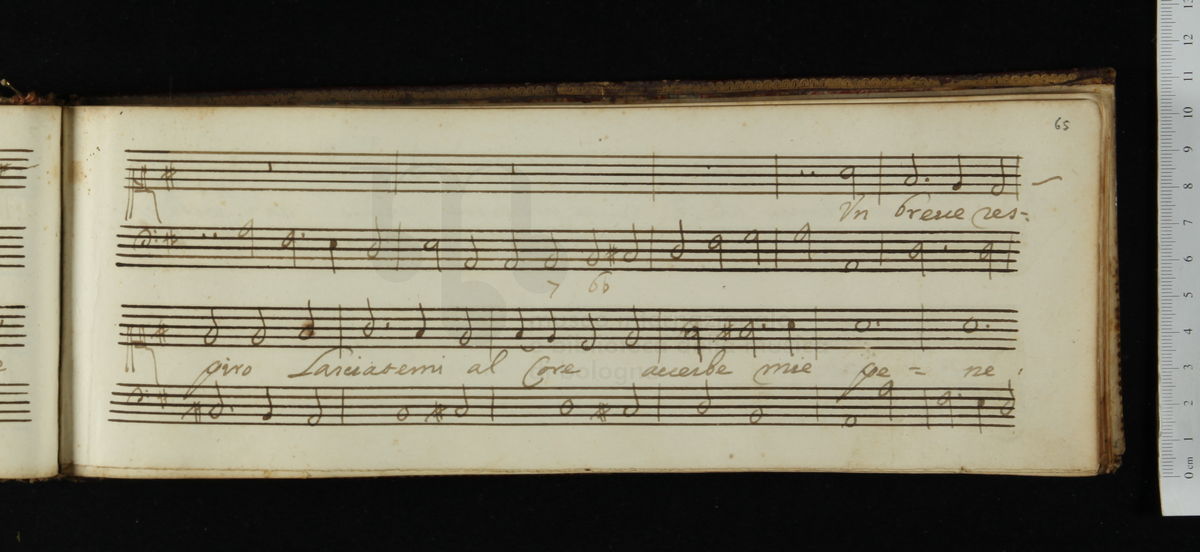 65
Un breue res-
7 6b
piro Lasciatemi al Core acerbe mie pe = ne
0 cm 1 2 3 4 5 6 7 8 9 10 11 12 13